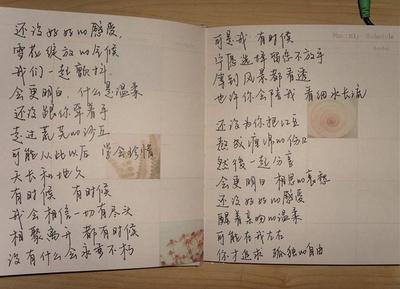 还没好好的感受,
雪花绽放的气候
我们一起颤抖.
会更明白, 什么是温柔
还没跟你牵着手
走过荒芜的沙丘
可能从此以后 学会珍惜
天长和地久
有时候 有时候
我会相信一切有尽头
相聚离开 都有时候
没有什么会永垂不朽
Monthly Schedule
可是我 有时候
宁愿选择留恋不放手
等到风景都看透
也许你会陪我 看细水长流
还没为你把红豆
熬成缠绵的伤口
然後一起分享
会更明白 相思的哀愁
还没好好的感受
醒着亲吻的温柔
可能在我左右
你才追求 孤独的自由